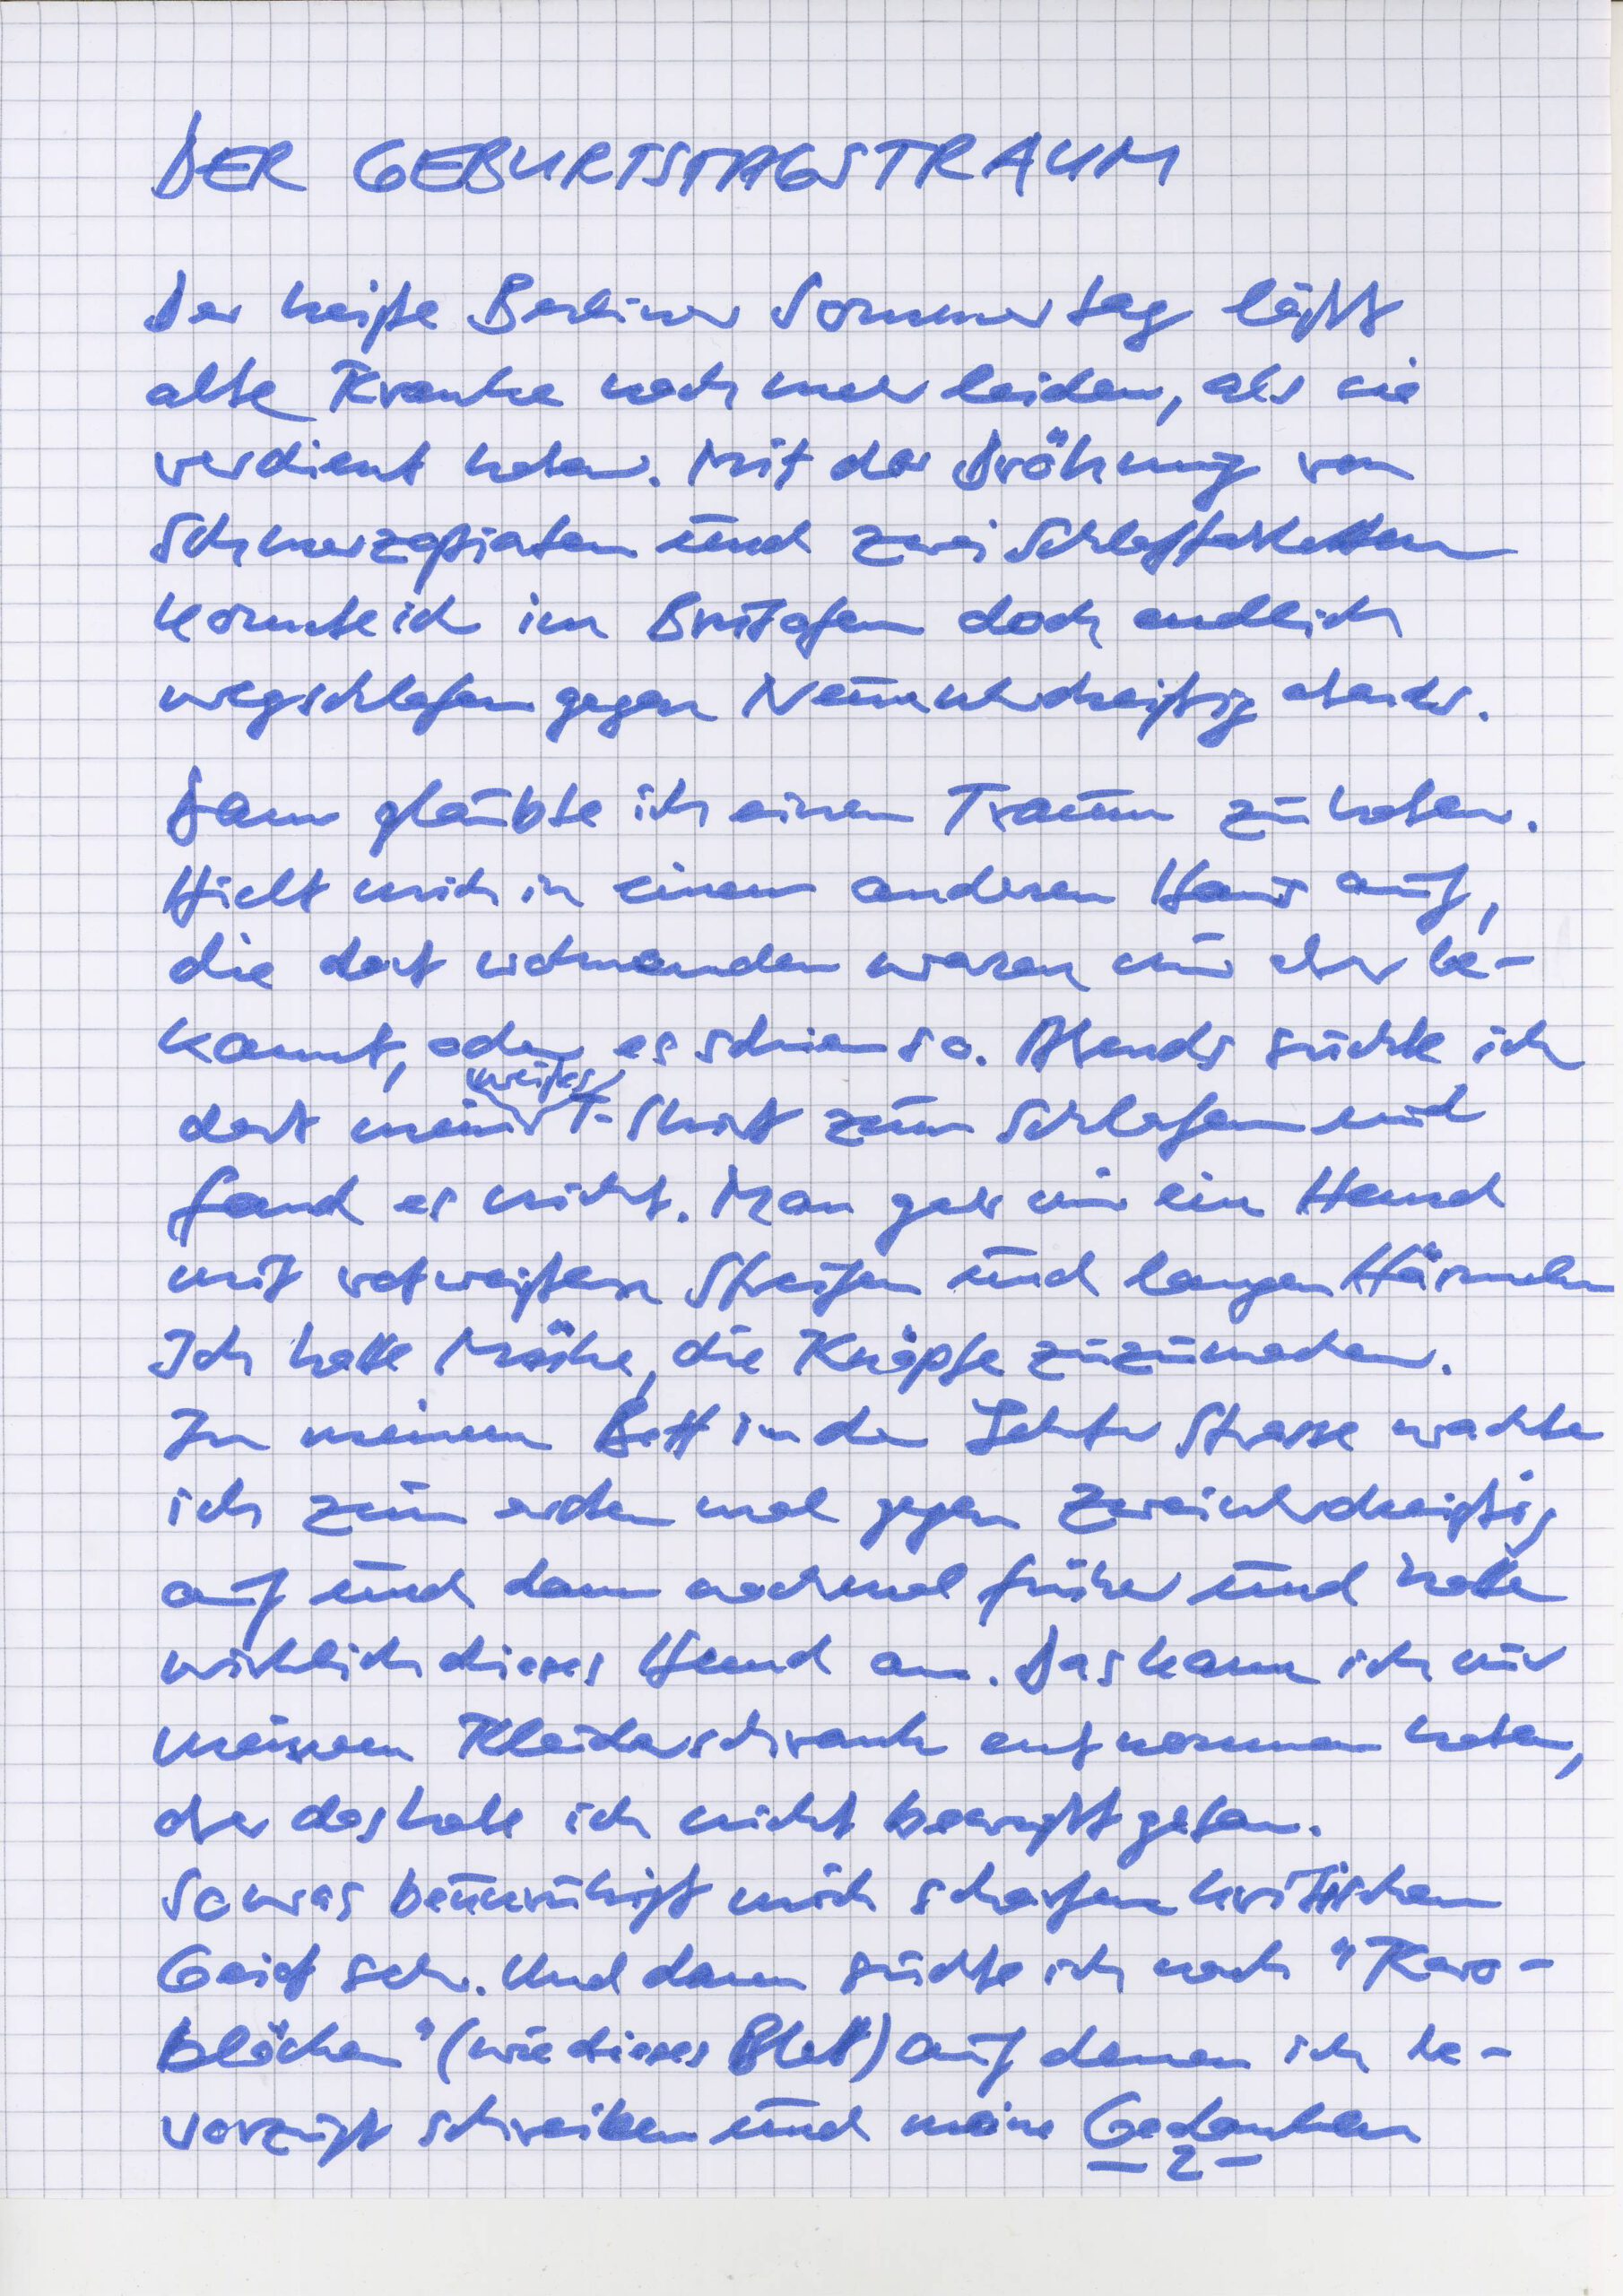 DER GEBURTSTAGSTRAUM
Der heiße Berliner Sommertag läßt
alte Kranke noch mehr leiden, als sie
verdient haben. Mit der Dröhnung von
Schmerzopiaten und zwei Schlaftabletten
konnte ich im Brutofen doch endlich
wegschlafen gegen Neunuhrdreißig abends.
Dann glaubte ich einen Traum zu haben.
Hielt mich in einem anderen Haus auf,
die dort wohnenden waren mir aber be-
kannt, oder es schien so. Abends suchte ich
weißes
dort mein T-Shirt zum Schlafen und
fand es nicht. Man gab mir ein Hemd
mit rotweißen Streifen und langen Härmeln
Ich hatte Mühe, die Knöpfe zuzumachen.
In meinem Bett in der Lehrter Strasse wachte
ich zum ersten mal gegen Zweiuhrdreißig
auf und dann nochmal früher und hatte
wirklich dieses Hemd an. Das kann ich nur
meinem Kleiderschrank entnommen haben,
aber das habe ich nicht bewußt getan.
Sowas beunruhigt mich scharfen kritischen
Geist sehr. Und dann suchte ich nach "Karo-
blöcken" (wie dieses Blatt) auf denen ich be-
vorzugt schreiben und meine Gedanken
- 2 -